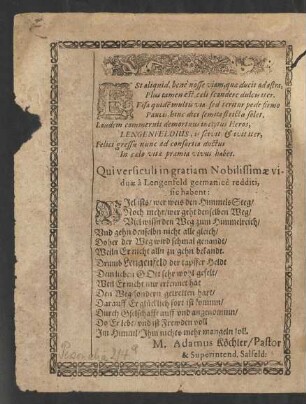 St aliquid, benè nosse viam, quæ ducit ad astra,
Plus tamen est, cœli scandere dulce iter.
Visa quidē multis via sed teritur pede
Pauci, hinc dici semita stella solet.
LENGENFELDIUS, & iter,
Felici gressu nunc ad consortia doctus
In cœlo vitæ præmia vivus habet.
Qui versiculi in gratiam Nobilissimæ viduæ
à Lengenfeld germanicè redditi,
sic habent:
Viel ists, wer weis den Himmels Steg/
Noch mehr/wer geht denselben Weg/
Viel wissen den Weg zum Himmelreich/
Und gehn denselben nicht alle gleich/
Daher der Weg wird schmal genandt/
Weiln Er nicht alln zu gehn bekandt.
Drumb Lengenfeld der tapffer Heldt
Dem lieben Gott sehr wohl gefelt/
Weil Er nicht nur erkennet hat
Den Weg/sondern getretten hart/
Darauff Er glücklich fort ist kommen/
Durch Gsellschafft auff und angenommn/
Da Er lebt/und ist Frewden voll
Im Himmel/Ihm nichts mehr mangeln soll.
M. Adamus Köchler/Pastor
& Superintend. Salfeld: